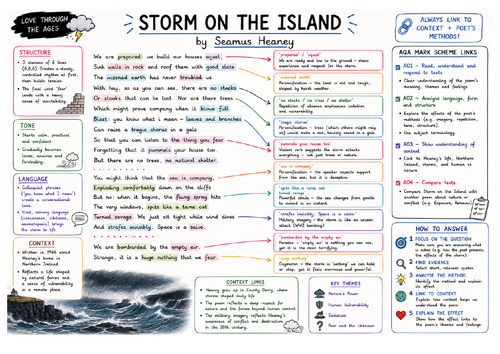 LOVE THROUGH
THE AGES
STORM ON THE ISLAND
by Seamus Heaney
ALWAYS LINK TO
CONTEXT + POET'S
METHODS!
STRUCTURE
• 3 stanzas of 6 lines
rhythm at first,
then builds tension.
• The final word 'fear'
lands with a heavy
sense of inevitability.
TONE
• Starts calm, practical
and confident.
• Gradually becomes
tense, anxious and
foreboding.
LANGUAGE
• Colloquial phrases
('you know what I mean')
create a conversational
tone.
• Vivid, sensory language
brings the storm to life.
CONTEXT
• Written in 1966 about
Heaney's home in
Northern Ireland.
• Reflects a life shaped
by natural forces and
a sense of vulnerability
in a remote place
We are prepared: we build our houses squat,
Sink walls in rock and roof them with good slate
The wizened earth has never troubled us
With hay, so as you can see, there are no stacks
Or stooks that can be lost. Nor are there trees
Which might prove company when it blows full
Blast: you know what I mean - leaves and branches
Can raise a tragic chorus in a gale
So that you can listen to the thing you fear
Forgetting that it pummels your house too.
But there are no trees, no natural shelter.
You might think that the sea is company,
Exploding comfortably down on the cliffs
But no: when it begins, the flung spray hits
The very windows, spits like a tame cat
Turned savage. We just sit tight while wind dives
And strafes invisibly. Space is a salvo.
We are bombarded by the empty air.
Strange, it is a huge nothing that we fear.
"prepared" / "squat"
We are ready and low to the ground - shows
experience and respect for the storm.
"wizened earth"
Personification - the land is old and tough,
shaped by harsh weather.
"no stacks / no trees / no shelter"
Repetition of absence emphasises isolation
and vulnerability.
"tragic chorus"
"pummels your house too"
Violent verb suggests the storm attacks
everything - not just trees or nature.
"sea is company"
Personification - the speaker expects support
from the sea, but it is deceptive.
"spits like a tame cat
turned savage"
Powerful simile - the sea changes from gentle
to violent in an instant.
"strafes invisibly. Space is a salvo"
Military imagery - the storm is like an unseen
attack (WW2 bombing).
"bombarded by the empty air"
Paradox - 'empty air' is nothing you can see,
yet it is the most terrifying.
"huge nothing"
Oxymoron - the storm is 'nothing' we can hold
or stop, yet it feels enormous and powerful.
CONTEXT LINKS
• Heaney grew up in County Derry, where
storms shaped daily life.
• The poem reflects a deep respect for
nature and the forces beyond human control.
• The military imagery reflects Heaney's
awareness of conflict and destruction
in the 20th century.
KEY THEMES
Nature's Power
Human Vulnerability
Isolation
Fear and the Unknown
AQA MARK SCHEME LINKS
AO1 - Read, understand and
respond to texts
• Clear understanding of the poem's
meaning, themes and feelings.
AO2 - Analyse language, form
and structure
• Explore the effects of the poet's
methods (e.g. imagery, repetition,
tone, structure).
• Use subject terminology.
AO3 - Show understanding of
context
• Link to Heaney's life, Northern
Ireland, storms, and human vs
nature.
AO4 - Compare texts
• Compare Storm on the Island with
another poem about nature or
conflict (e.g. Exposure, Remains)
HOW TO ANSWER
1 FOCUS ON THE QUESTION
Make sure you are answering what
is asked (e.g. how the poet presents
the effects of the storm).
2 FIND EVIDENCE
Select short, relevant quotes.
3 ANALYSE THE METHOD
Identify the method and explain
its effect.
4 LINK TO CONTEXT
Explain how context helps us
understand the poem.
5 EXPLAIN THE EFFECT
Show how the effect links to
the poem's themes and feelings.